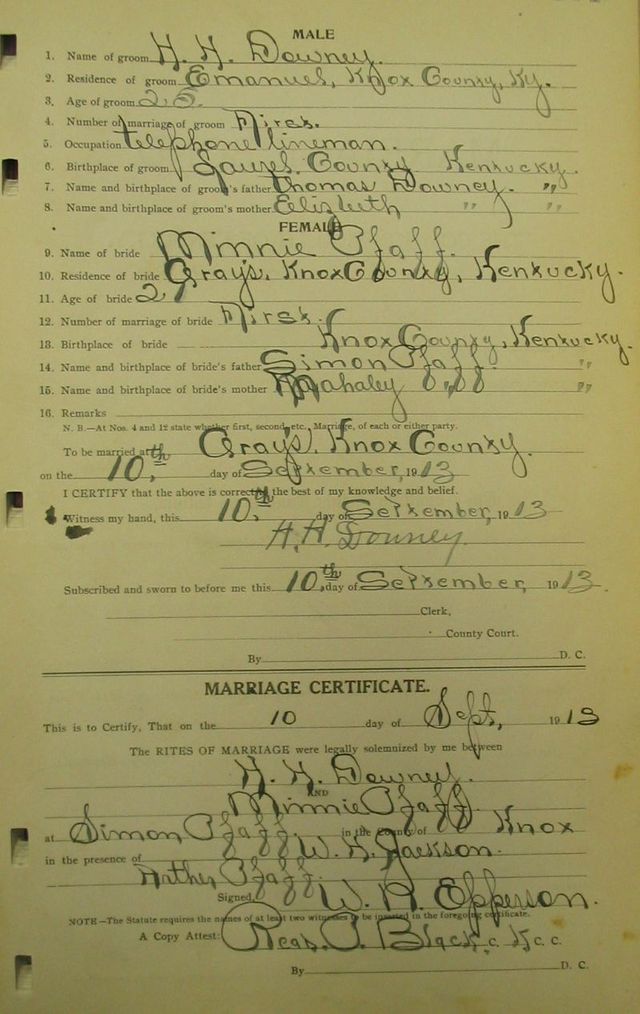 MALE
1. Name of groom H. H. Downey.
2. Residence of groom Emanuel, Knox County, Ky.
3. Age of groom 25
4. Number of marriage of groom First.
5. Occupation telephone lineman.
6. Birthplace of groom Laurel County Kentucky.
7. Name and birthplace of groom's father Thomas Downey. "
8. Name and birthplace of groom's mother Elizbeth " "
FEMALE
9. Name of bride Minnie Pfaff.
10. Residence of bride Gray's, Knox County, Kentucky.
11. Age of bride 27
12. Number of marriage of bride First.
13. Birthplace of bride Knox County, Kentucky.
14. Name and birthplace of bride's father Simon Pfaff. "
15. Name and birthplace of bride's mother Mahaley " "
16. Remarks
N. B.—At Nos. 4 and 12 state whether first, second, etc., Marriage, of each or either party.
To be married at Gray's, Knox County.
on the 10th day of September, 1913
I CERTIFY that the above is correct to the best of my knowledge and belief.
Witness my hand, this 10th day of September, 1913
H. H. Downey
Subscribed and sworn to before me this 10th day of September, 1913.
Clerk,
County Court.
By D. C.
MARRIAGE CERTIFICATE.
This is to Certify, That on the 10 day of Sept, 1913
The RITES OF MARRIAGE were legally solemnized by me between
H. H. Downey.
AND
Minnie Pfaff.
at Simon Pfaff. in the County of Knox
in the presence of W. H. Jackson.
Arther Pfaff.
Signed, W. R. Epperson.
NOTE—The Statute requires the names of at least two witnesses to be inserted in the foregoing certificate.
A Copy Attest: Read P. Black, C. K. C. C.
By D. C.